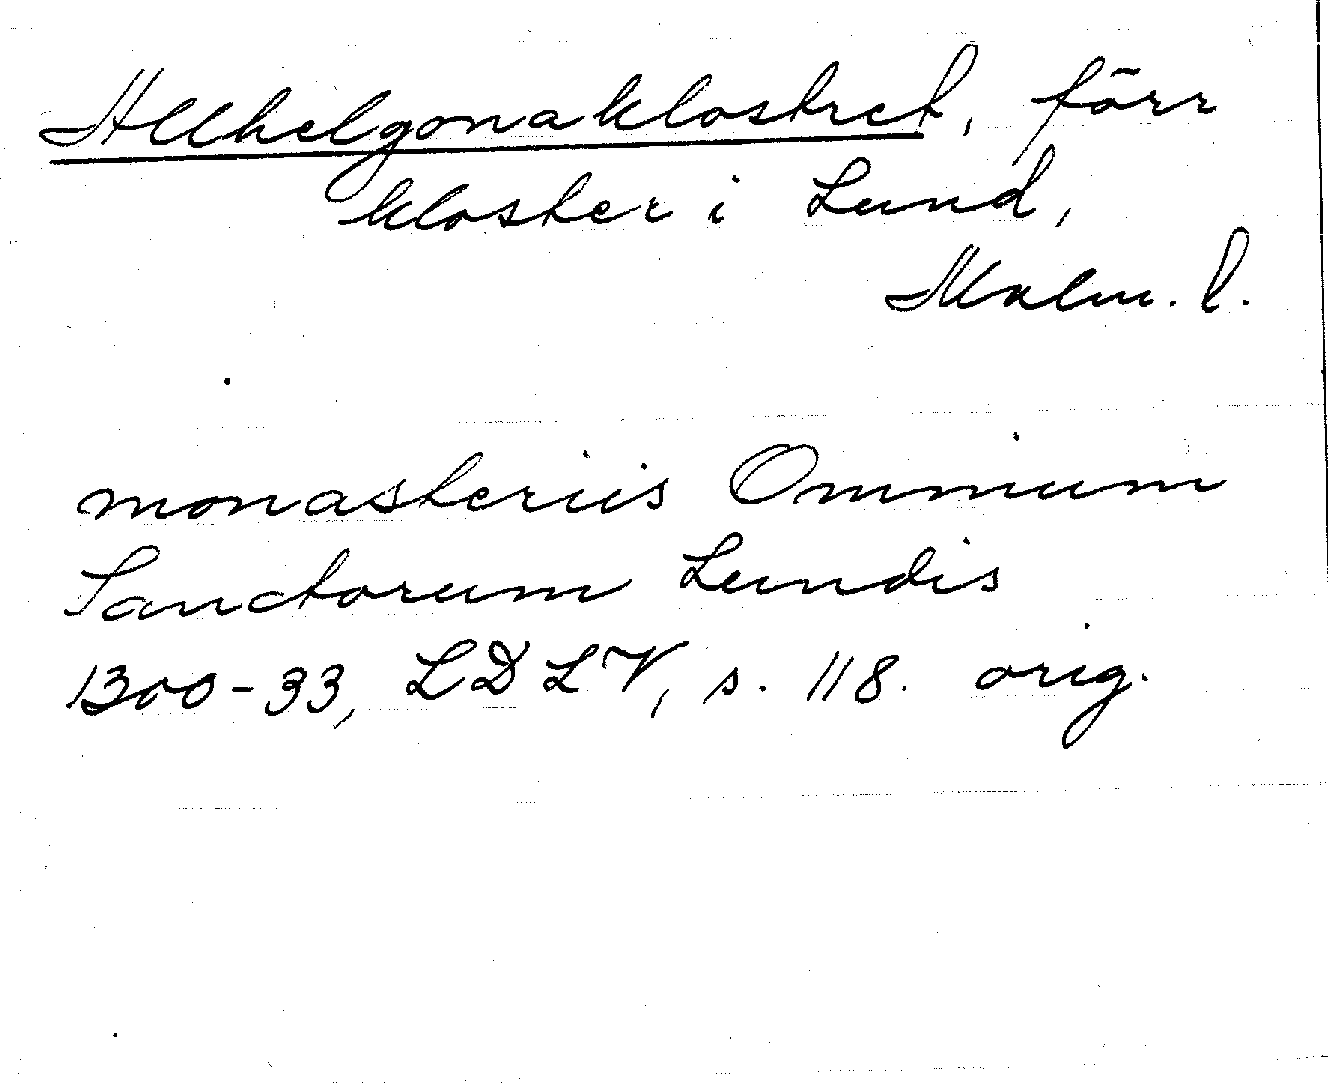 Allhelgonaklostret, förr
kloster i Lund,
Malm. l.
monasteriis Omnium
Sanctorum Lundis
1300-33, LDLV, s. 118. orig.